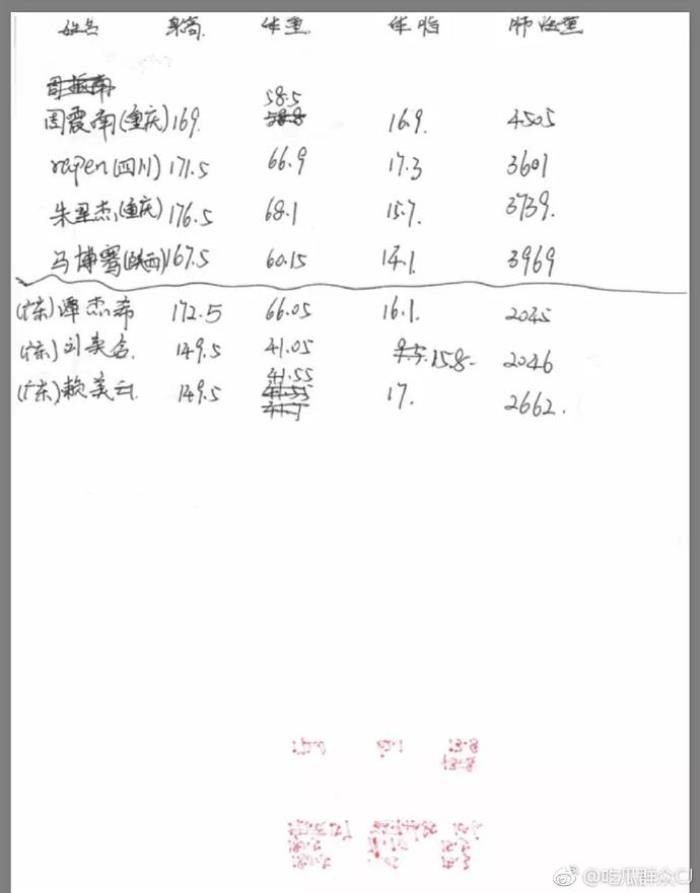 姓名 身高. 体重 体脂 肺活量
周振南
58.5
周震南(重庆)169. 58.8 16.9. 4505
rapen(四川)171.5 66.9 17.3 3601
朱星杰(重庆)176.5 68.1 15.7. 3739.
马博骞(陕西)167.5 60.15 14.1 3969
(广东)谭杰希 172.5 66.05 16.1. 2045
(广东)刘美含. 149.5 41.05 15.8- 2046
41.55
(广东)赖美云. 149.5 41.55 17. 2662.
@吃瓜群众CJ